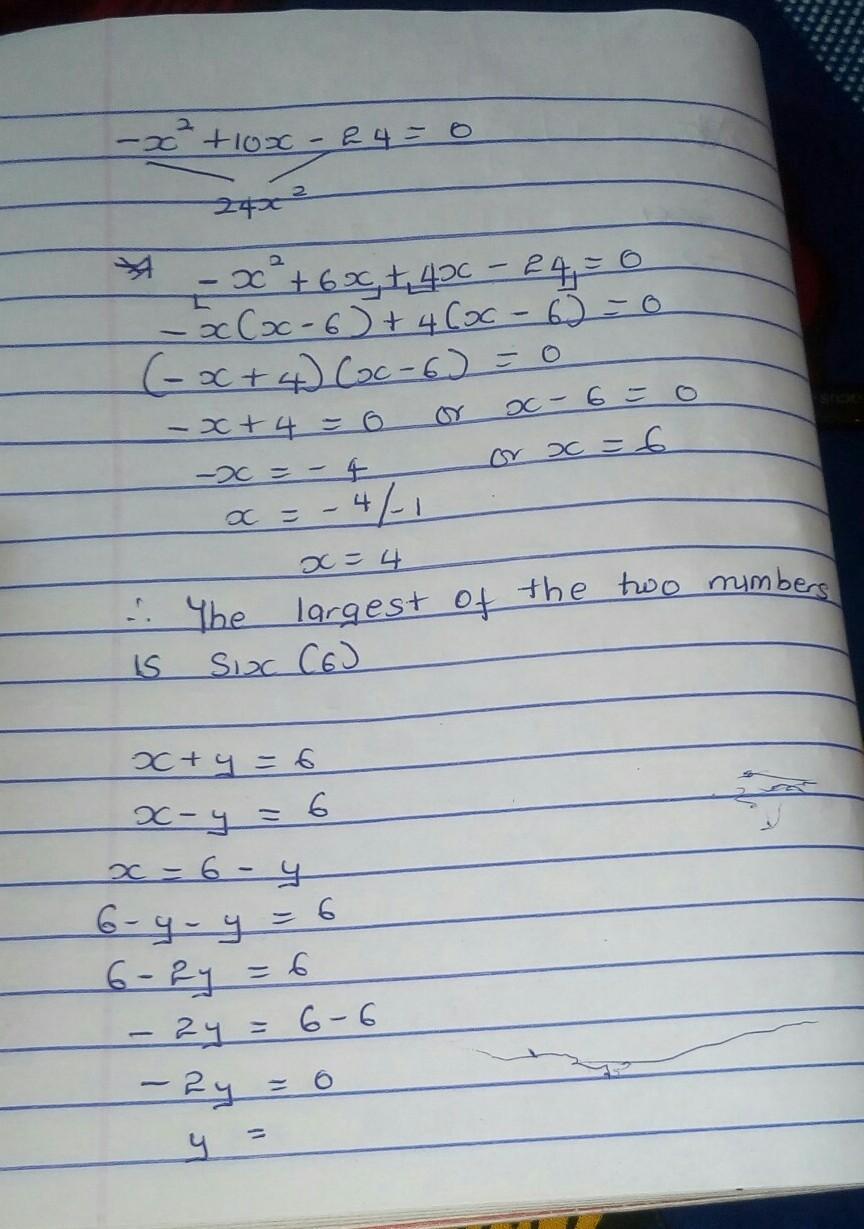 -x² + 10x - 24 = 0
24x²
-x² + 6x + 4x - 24 = 0
-x(x - 6) + 4(x - 6) = 0
(-x + 4)(x - 6) = 0
-x + 4 = 0 or x - 6 = 0
-x = -4 or x = 6
x = -4/-1
x = 4
∴ The largest of the two numbers
is six (6)
x + y = 6
x - y = 6
x = 6 - y
6 - y - y = 6
6 - 2y = 6
- 2y = 6 - 6
- 2y = 0
y =